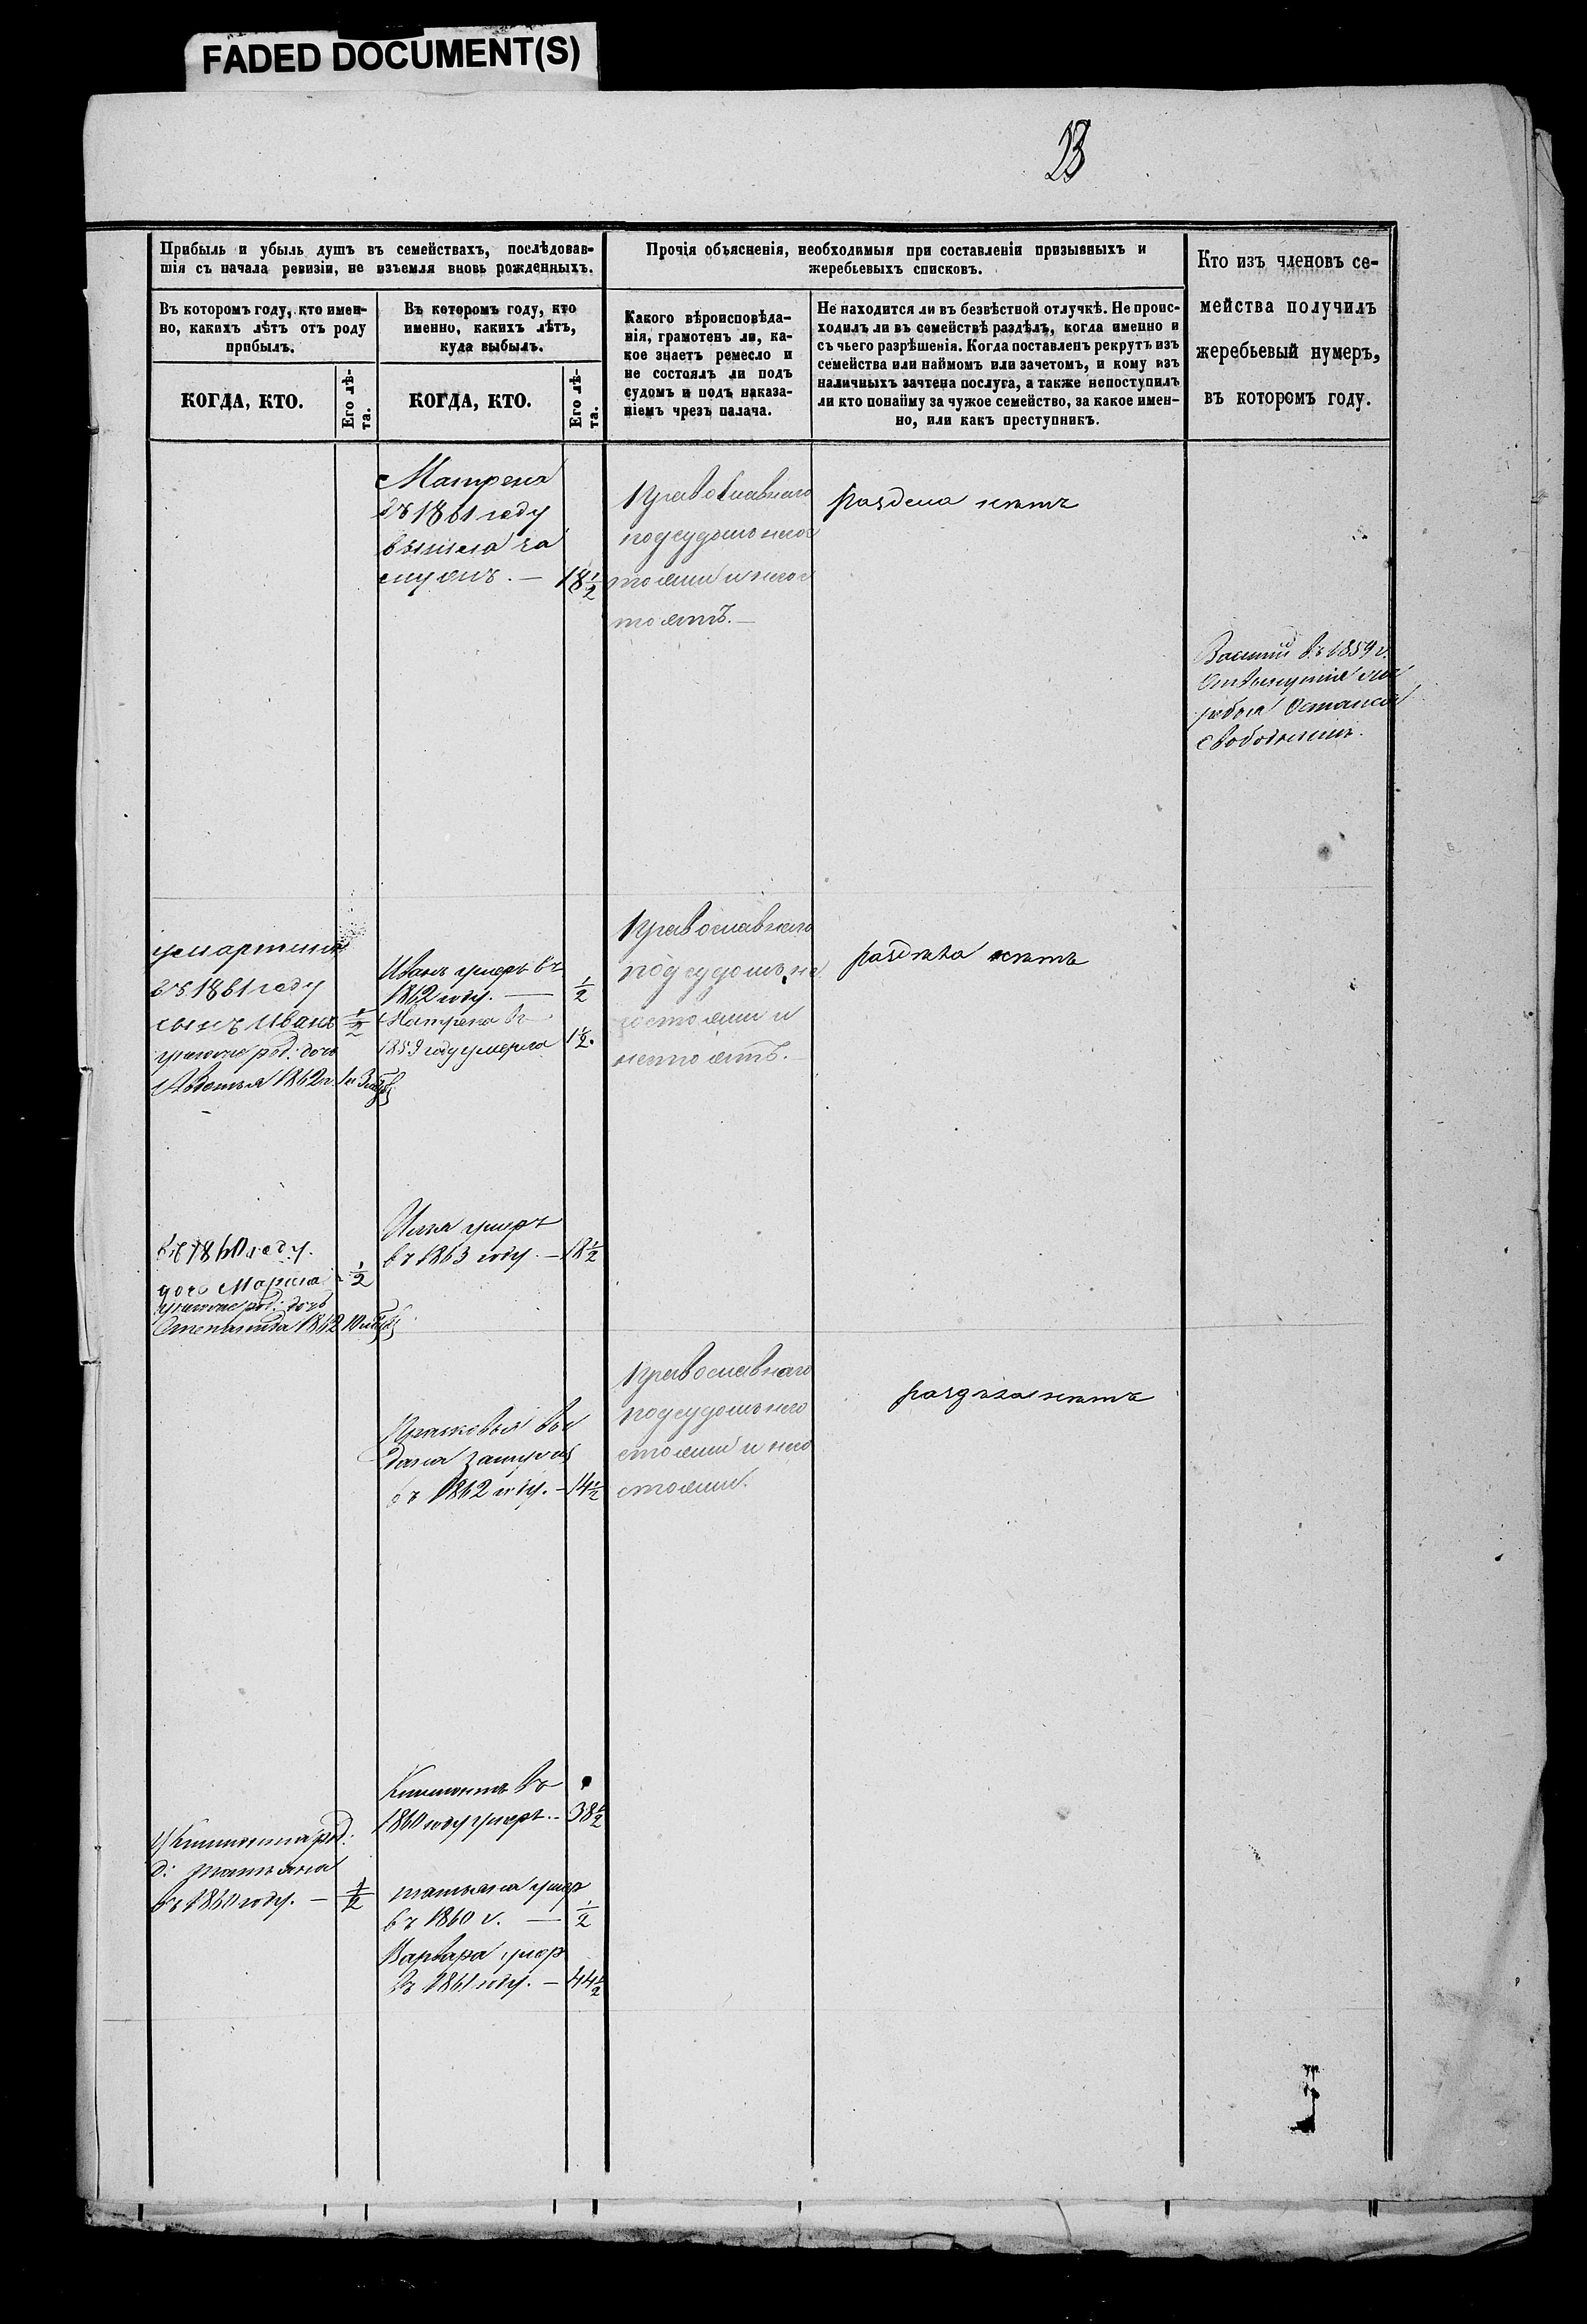 FADED DOCUMENT(S)
23
Прибыль и убыль душъ въ семействахъ, послѣдовав-
шія съ начала ревизіи, не изъемля вновь рожденныхъ.
Прочія объясненія, необходимыя при составленіи призывныхъ и
жеребьевыхъ списковъ.
Кто изъ членовъ се-
мейства получилъ
жеребьевый нумеръ,
въ которомъ году.
Въ которомъ году, кто имен-
но, какихъ лѣтъ отъ роду
прибылъ.
Въ которомъ году, кто
именно, какихъ лѣтъ,
куда выбылъ.
Какого вѣроисповѣда-
нія, грамотенъ ли, ка-
кое знаетъ ремесло и
не состоялъ ли подъ
судомъ и подъ наказа-
ніемъ чрезъ палача.
Не находится ли въ безвѣстной отлучкѣ. Не проис-
ходилъ ли въ семействѣ раздѣлъ, когда именно и
съ чьего разрѣшенія. Когда поставленъ рекрутъ изъ
семейства или наймомъ или зачетомъ, и кому изъ
наличныхъ зачтена послуга, а также непоступилъ
ли кто понайму за чужое семейство, за какое имен-
но, или какъ преступникъ.
КОГДА, КТО.
Его лѣ-
та.
КОГДА, КТО.
Его лѣ-
та.
Матрена
въ 1861 году
вышла за
мужъ. — 18 1/2
Православнаго
подсудомъ несос
тояли и несос
тоятъ. —
раздела нетъ
Василій въ 1859 г.
жа
ребья остался
свободнымъ.
у мартина
въ 1861 году
сынъ Иванъ 1/2
род: дочь
1862 г.
Иванъ умеръ въ
1862 году. — 1/2
Матрена въ
1859 году умерла 1 1/2.
Православнаго
подсудомъ не
состояли и
нестоятъ. —
раздѣла нетъ
въ 1860 году.
дочь Марина 1/2
род: дочь
Степанида 1862
Илья умеръ
въ 1863 году. — 18 1/2
Прасковья вы
дана замужъ
въ 1862 году. — 14 1/2
Православнаго
подсудомъ несо
стояли и несо
стояли.
раздѣла нетъ
Климонтъ въ
1860 году умеръ. — 38 1/2
У Климонта род:
д: татьяна
въ 1860 году. — 1/2
татьяна умер
въ 1860 г. — 1/2
Варвара умер
въ 1861 году. — 44 1/2